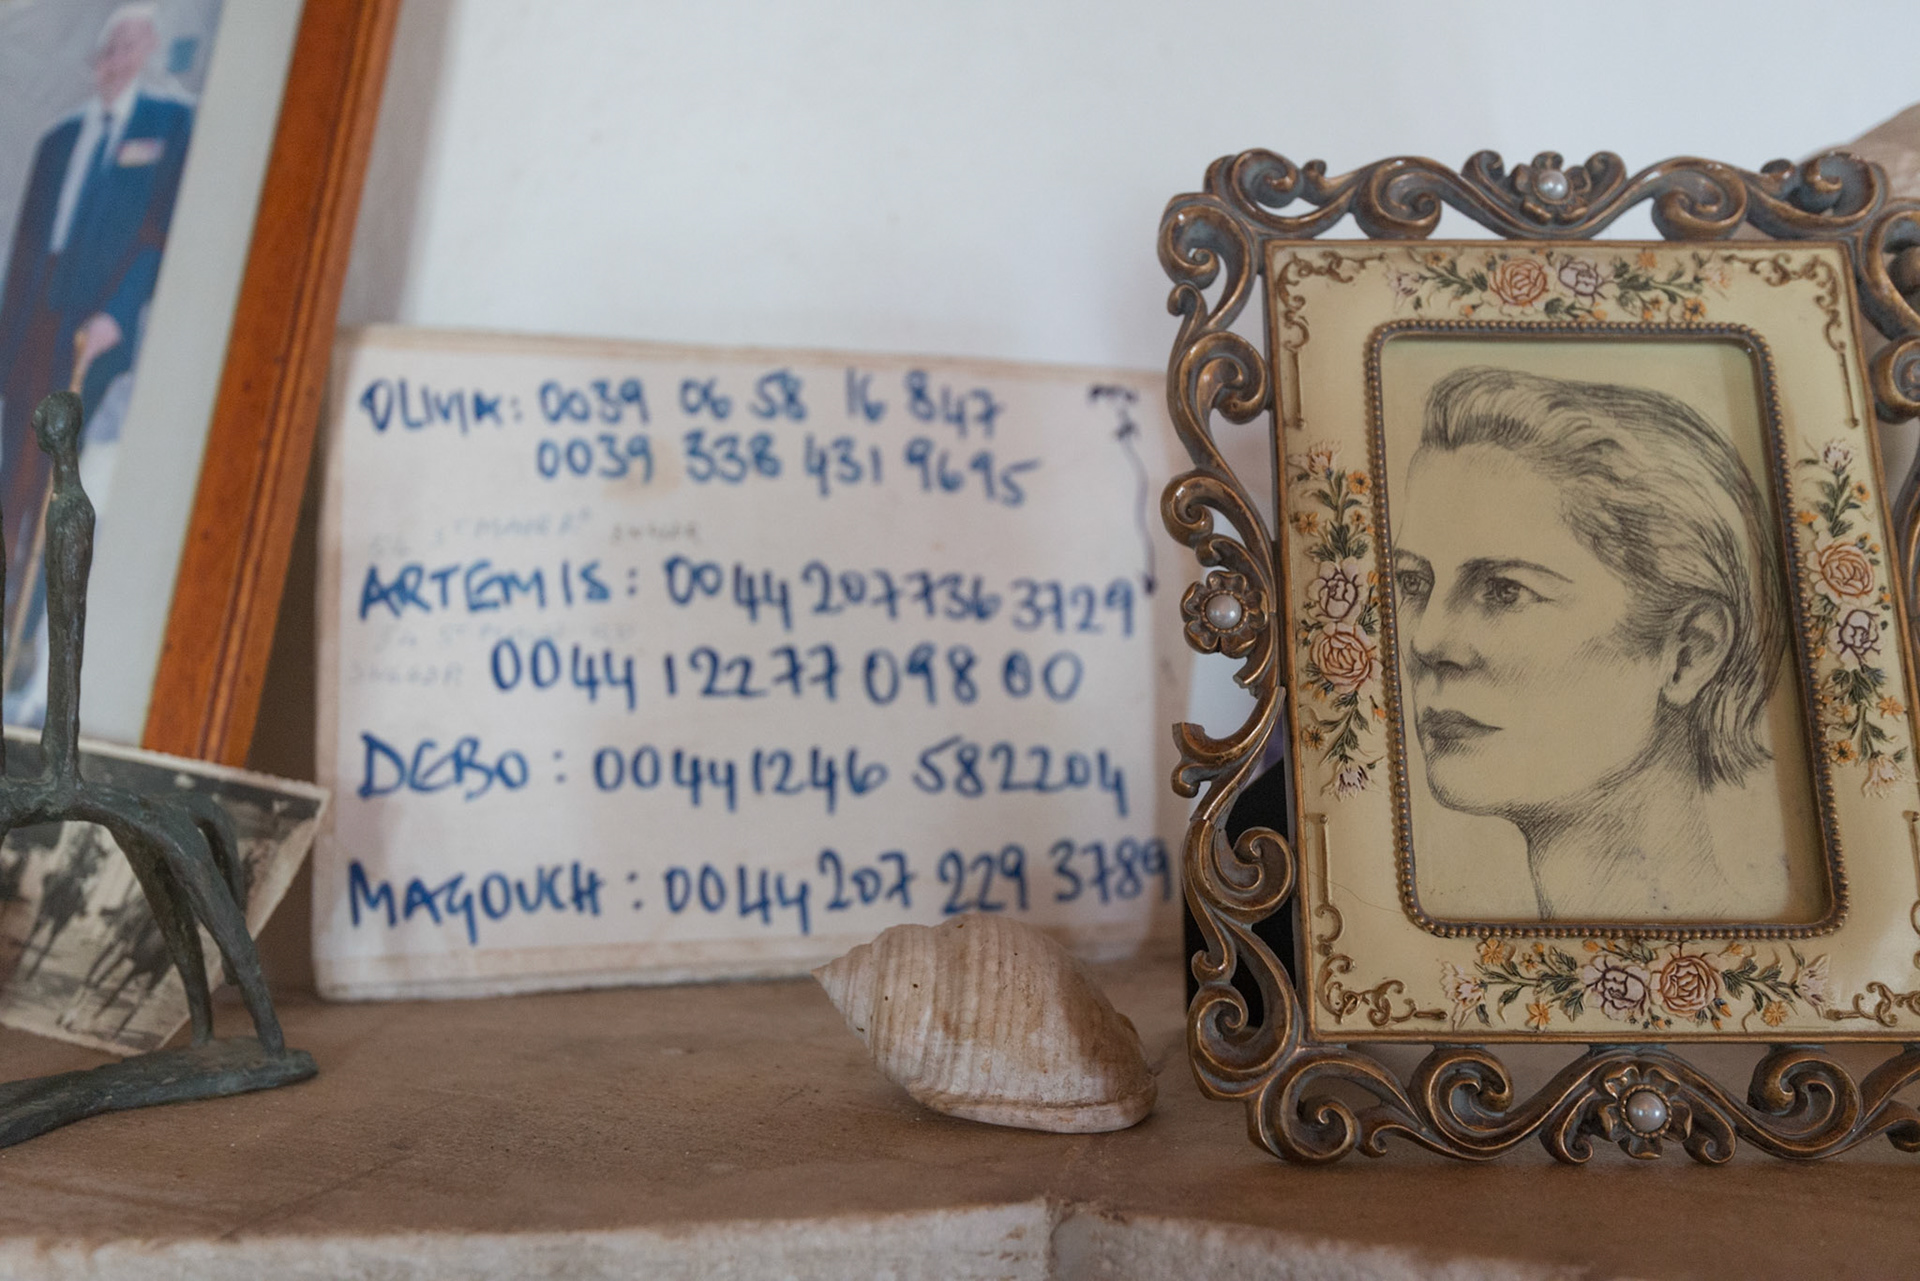 OLIVIA: 0039 06 58 16 847
0039 338 431 9695
ARTEMIS: 0044 207736 3729
0044 12277 098 00
DEBO: 00441246 582204
MAGOUCH: 0044 207 229 3789